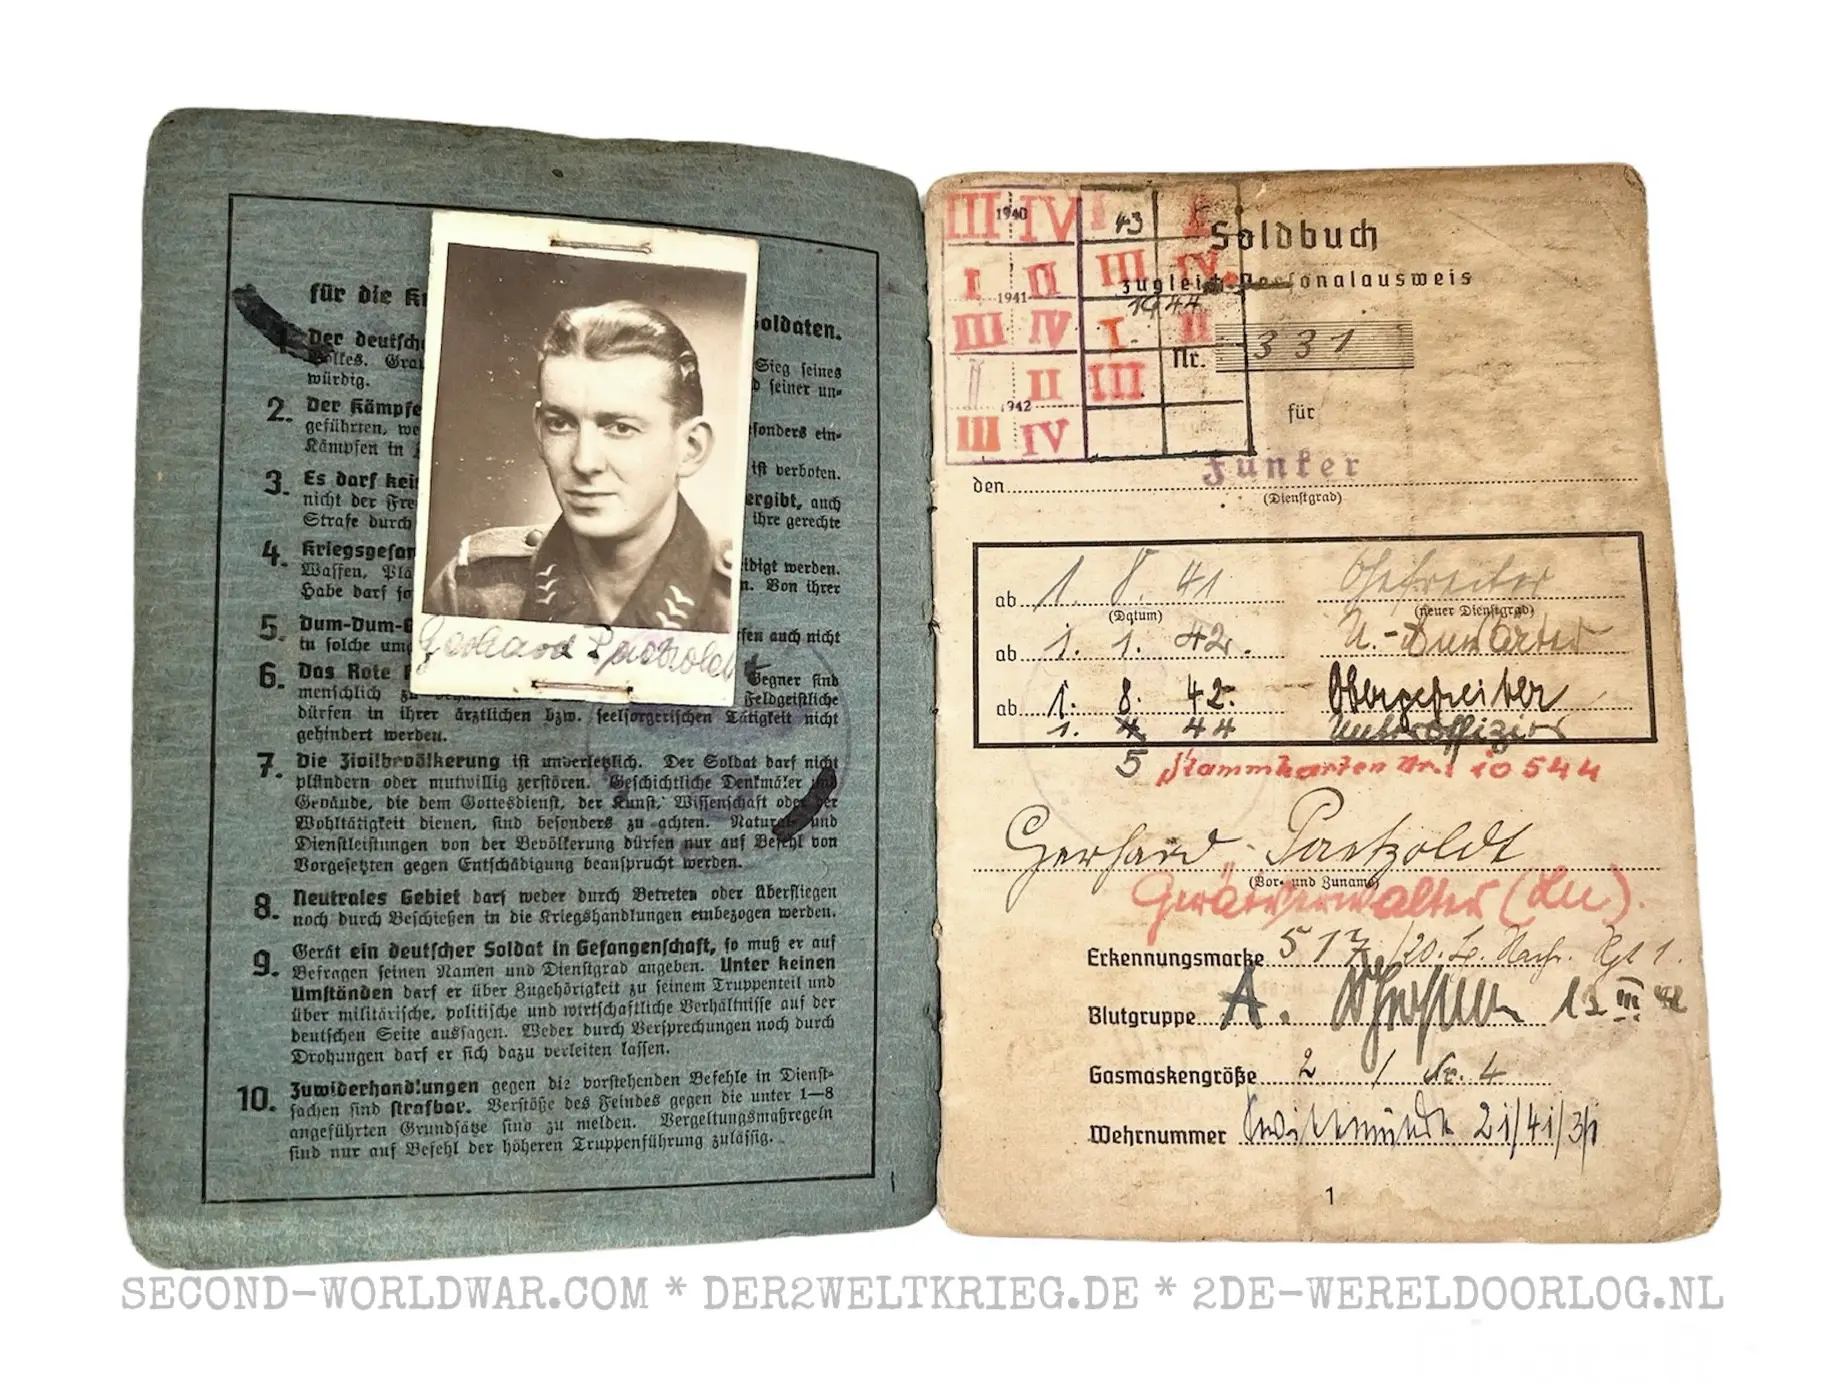 für die
Soldaten.
Der deutsche
Sieg seines
Volkes.
seiner un-
würdig.
2. Der Kämpfe
geführten, we
esonders ein-
Kämpfen in
3. Es darf kei
ist verboten.
nicht der Fre
ergibt, auch
Strafe durch
ihre gerechte
4. Kriegsgefan
idigt werden.
Waffen, Plä
n. Von ihrer
Habe darf
5. Dum-Dum-G
fen auch nicht
in solche um
6. Das Rote
Gegner sind
menschlich zu
Feldgeistliche
dürfen in ihrer ärztlichen bzw. seelsorgerischen Tätigkeit nicht
gehindert werden.
7. Die Zivilbevölkerung ist unverletzlich. Der Soldat darf nicht
plündern oder mutwillig zerstören. Geschichtliche Denkmäler und
Gebäude, die dem Gottesdienst, der Kunst, Wissenschaft oder der
Wohltätigkeit dienen, sind besonders zu achten. Natural- und
Dienstleistungen von der Bevölkerung dürfen nur auf Befehl von
Vorgesetzten gegen Entschädigung beansprucht werden.
8. Neutrales Gebiet darf weder durch Betreten oder Überfliegen
noch durch Beschießen in die Kriegshandlungen einbezogen werden.
9. Gerät ein deutscher Soldat in Gefangenschaft, so muß er auf
Befragen seinen Namen und Dienstgrad angeben. Unter keinen
Umständen darf er über Zugehörigkeit zu seinem Truppenteil und
über militärische, politische und wirtschaftliche Verhältnisse auf der
deutschen Seite aussagen. Weder durch Versprechungen noch durch
Drohungen darf er sich dazu verleiten lassen.
10. Zuwiderhandlungen gegen die vorstehenden Befehle in Dienst-
sachen sind strafbar. Verstöße des Feindes gegen die unter 1—8
angeführten Grundsätze sind zu melden. Vergeltungsmaßregeln
sind nur auf Befehl der höheren Truppenführung zulässig.
Gerhard Paetzoldt
III 1940 IV I 43 II
I II III IV
1941 1944
III IV I II
II III
1942
III IV
Soldbuch
zugleich Personalausweis
Nr. 331
für
den Funker
(Dienstgrad)
ab 1. 8. 41 Gefreiter
(Datum) (neuer Dienstgrad)
ab 1. 1. 42. U.-Anwärter
ab 1. 8. 42. Obergefreiter
1. 4 44 Unteroffizier
5 Stammkarten Nr. 10544
Gerhard Paetzoldt
(Vor- und Zuname)
Geräteverwalter (Ln).
Erkennungsmarke 517/20. L. Nachr. Rgt 1.
Blutgruppe A. 13 III 42
Gasmaskengröße 2 / Nr. 4
Wehrnummer Swinemünde 21/41/3/1
1
SECOND-WORLDWAR.COM * DER2WELTKRIEG.DE * 2DE-WERELDOORLOG.NL